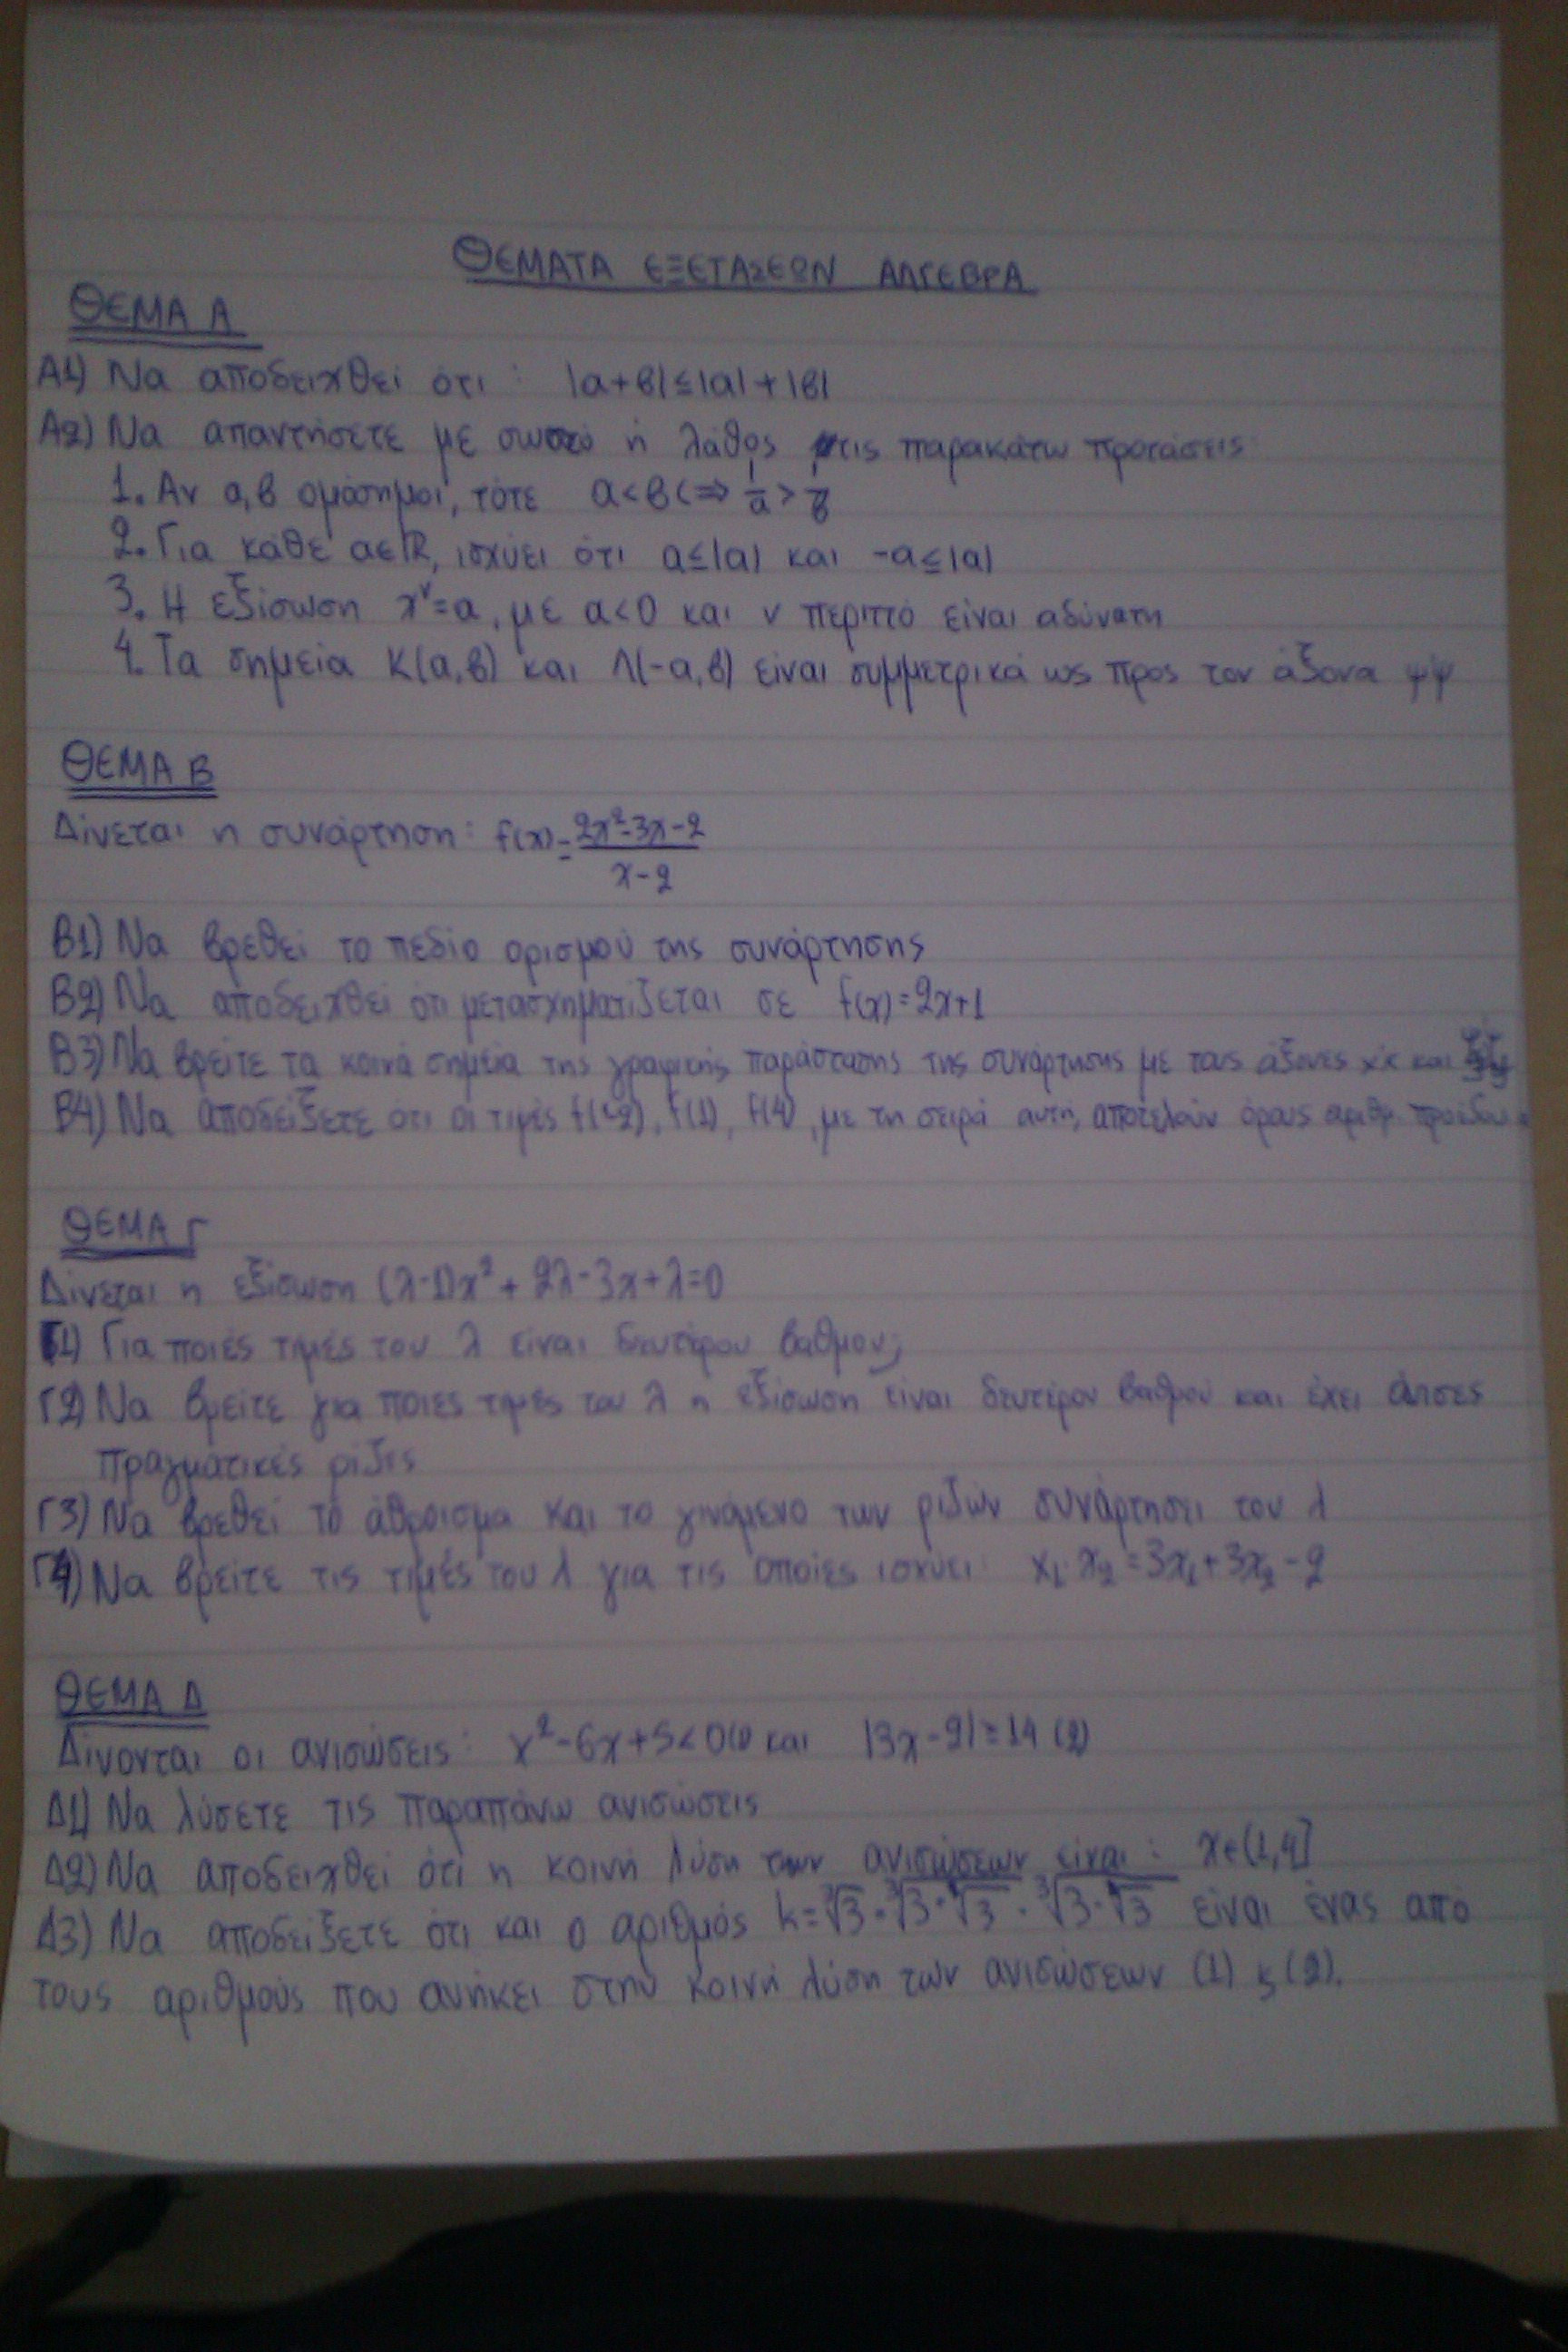 ΘΕΜΑΤΑ ΕΞΕΤΑΣΕΩΝ ΑΛΓΕΒΡΑ
ΘΕΜΑ Α
Α1) Να αποδειχθεί ότι : |α+β|≤|α|+|β|
Α2) Να απαντήσετε με σωστό ή λάθος στις παρακάτω προτάσεις:
1. Αν α,β ομόσημοι, τότε α<β<=> 1/α > 1/β
2. Για κάθε α∈ℝ, ισχύει ότι α≤|α| και -α≤|α|
3. Η εξίσωση xᵛ=α, με α<0 και ν περιττό είναι αδύνατη
4. Τα σημεία Κ(α,β) και Λ(-α,β) είναι συμμετρικά ως προς τον άξονα ψ'ψ
ΘΕΜΑ Β
Δίνεται η συνάρτηση: f(x)= (2x²-3x-2)/(x-2)
Β1) Να βρεθεί το πεδίο ορισμού της συνάρτησης
Β2) Να αποδειχθεί ότι μετασχηματίζεται σε f(x)=2x+1
Β3) Να βρείτε τα κοινά σημεία της γραφικής παράστασης της συνάρτησης με τους άξονες x'x και ψ'ψ
Β4) Να αποδείξετε ότι οι τιμές f(-2), f(1), f(4), με τη σειρά αυτή, αποτελούν όρους αριθμ. προόδου
ΘΕΜΑ Γ
Δίνεται η εξίσωση (λ-1)x² + 2λ-3x+λ=0
Γ1) Για ποιές τιμές του λ είναι δευτέρου βαθμού;
Γ2) Να βρείτε για ποιες τιμές του λ η εξίσωση είναι δευτέρου βαθμού και έχει άνισες
πραγματικές ρίζες
Γ3) Να βρεθεί το άθροισμα και το γινόμενο των ριζών συνάρτησει του λ
Γ4) Να βρείτε τις τιμές του λ για τις οποίες ισχύει: x₁·x₂=3x₁+3x₂-2
ΘΕΜΑ Δ
Δίνονται οι ανισώσεις: x²-6x+5<0(1) και (2)
Δ1) Να λύσετε τις παραπάνω ανισώσεις
Δ2) Να αποδειχθεί ότι η κοινή λύση των ανισώσεων είναι: x∈(1,4]
Δ3) Να αποδείξετε ότι και ο αριθμός είναι ένας από
τους αριθμούς που ανήκει στην κοινή λύση των ανισώσεων (1) ϗ (2).